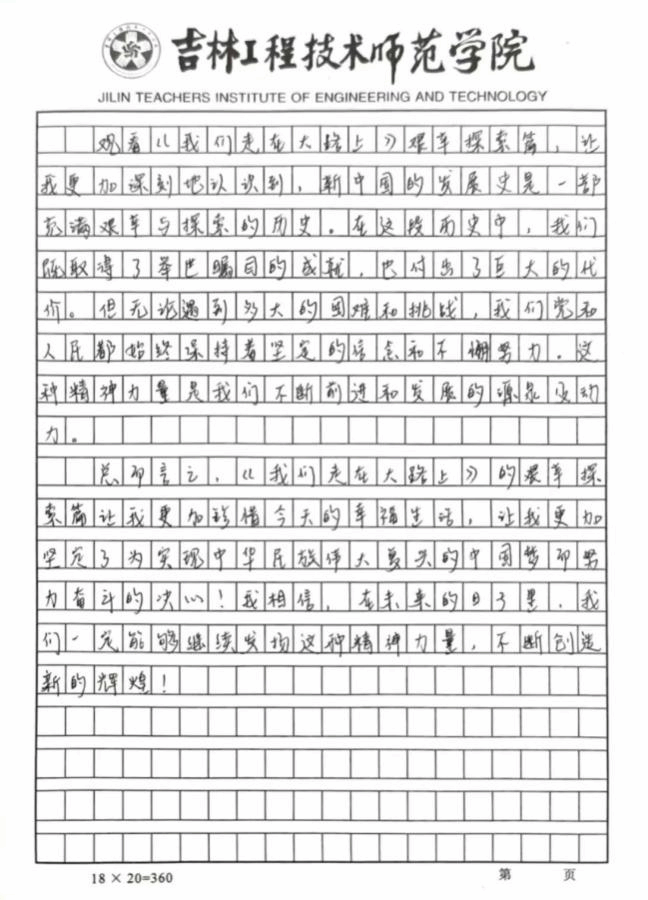 吉林工程技术师范学院
JILIN TEACHERS INSTITUTE OF ENGINEERING AND TECHNOLOGY
观看《《我们走在大路上》艰辛探索篇，让
我更加深刻地认识到，新中国的发展史是一部
充满艰辛与探索的历史。在这段历史中，我们
既取得了举世瞩目的成就，也付出了巨大的代
价。但无论遇到多大的困难和挑战，我们党和
人民都始终保持着坚定的信念和不懈努力。这
种精神力量是我们不断前进和发展的源泉及动
力。
总而言之，《《我们走在大路上》》的艰辛探
索篇让我更加珍惜今天的幸福生活，让我更加
坚定了为实现中华民族伟大复兴的中国梦而努
力奋斗的决心！我相信，在未来的日子里，我
们一定能够继续发扬这种精神力量，不断创造
新的辉煌！
18 × 20=360
第 页